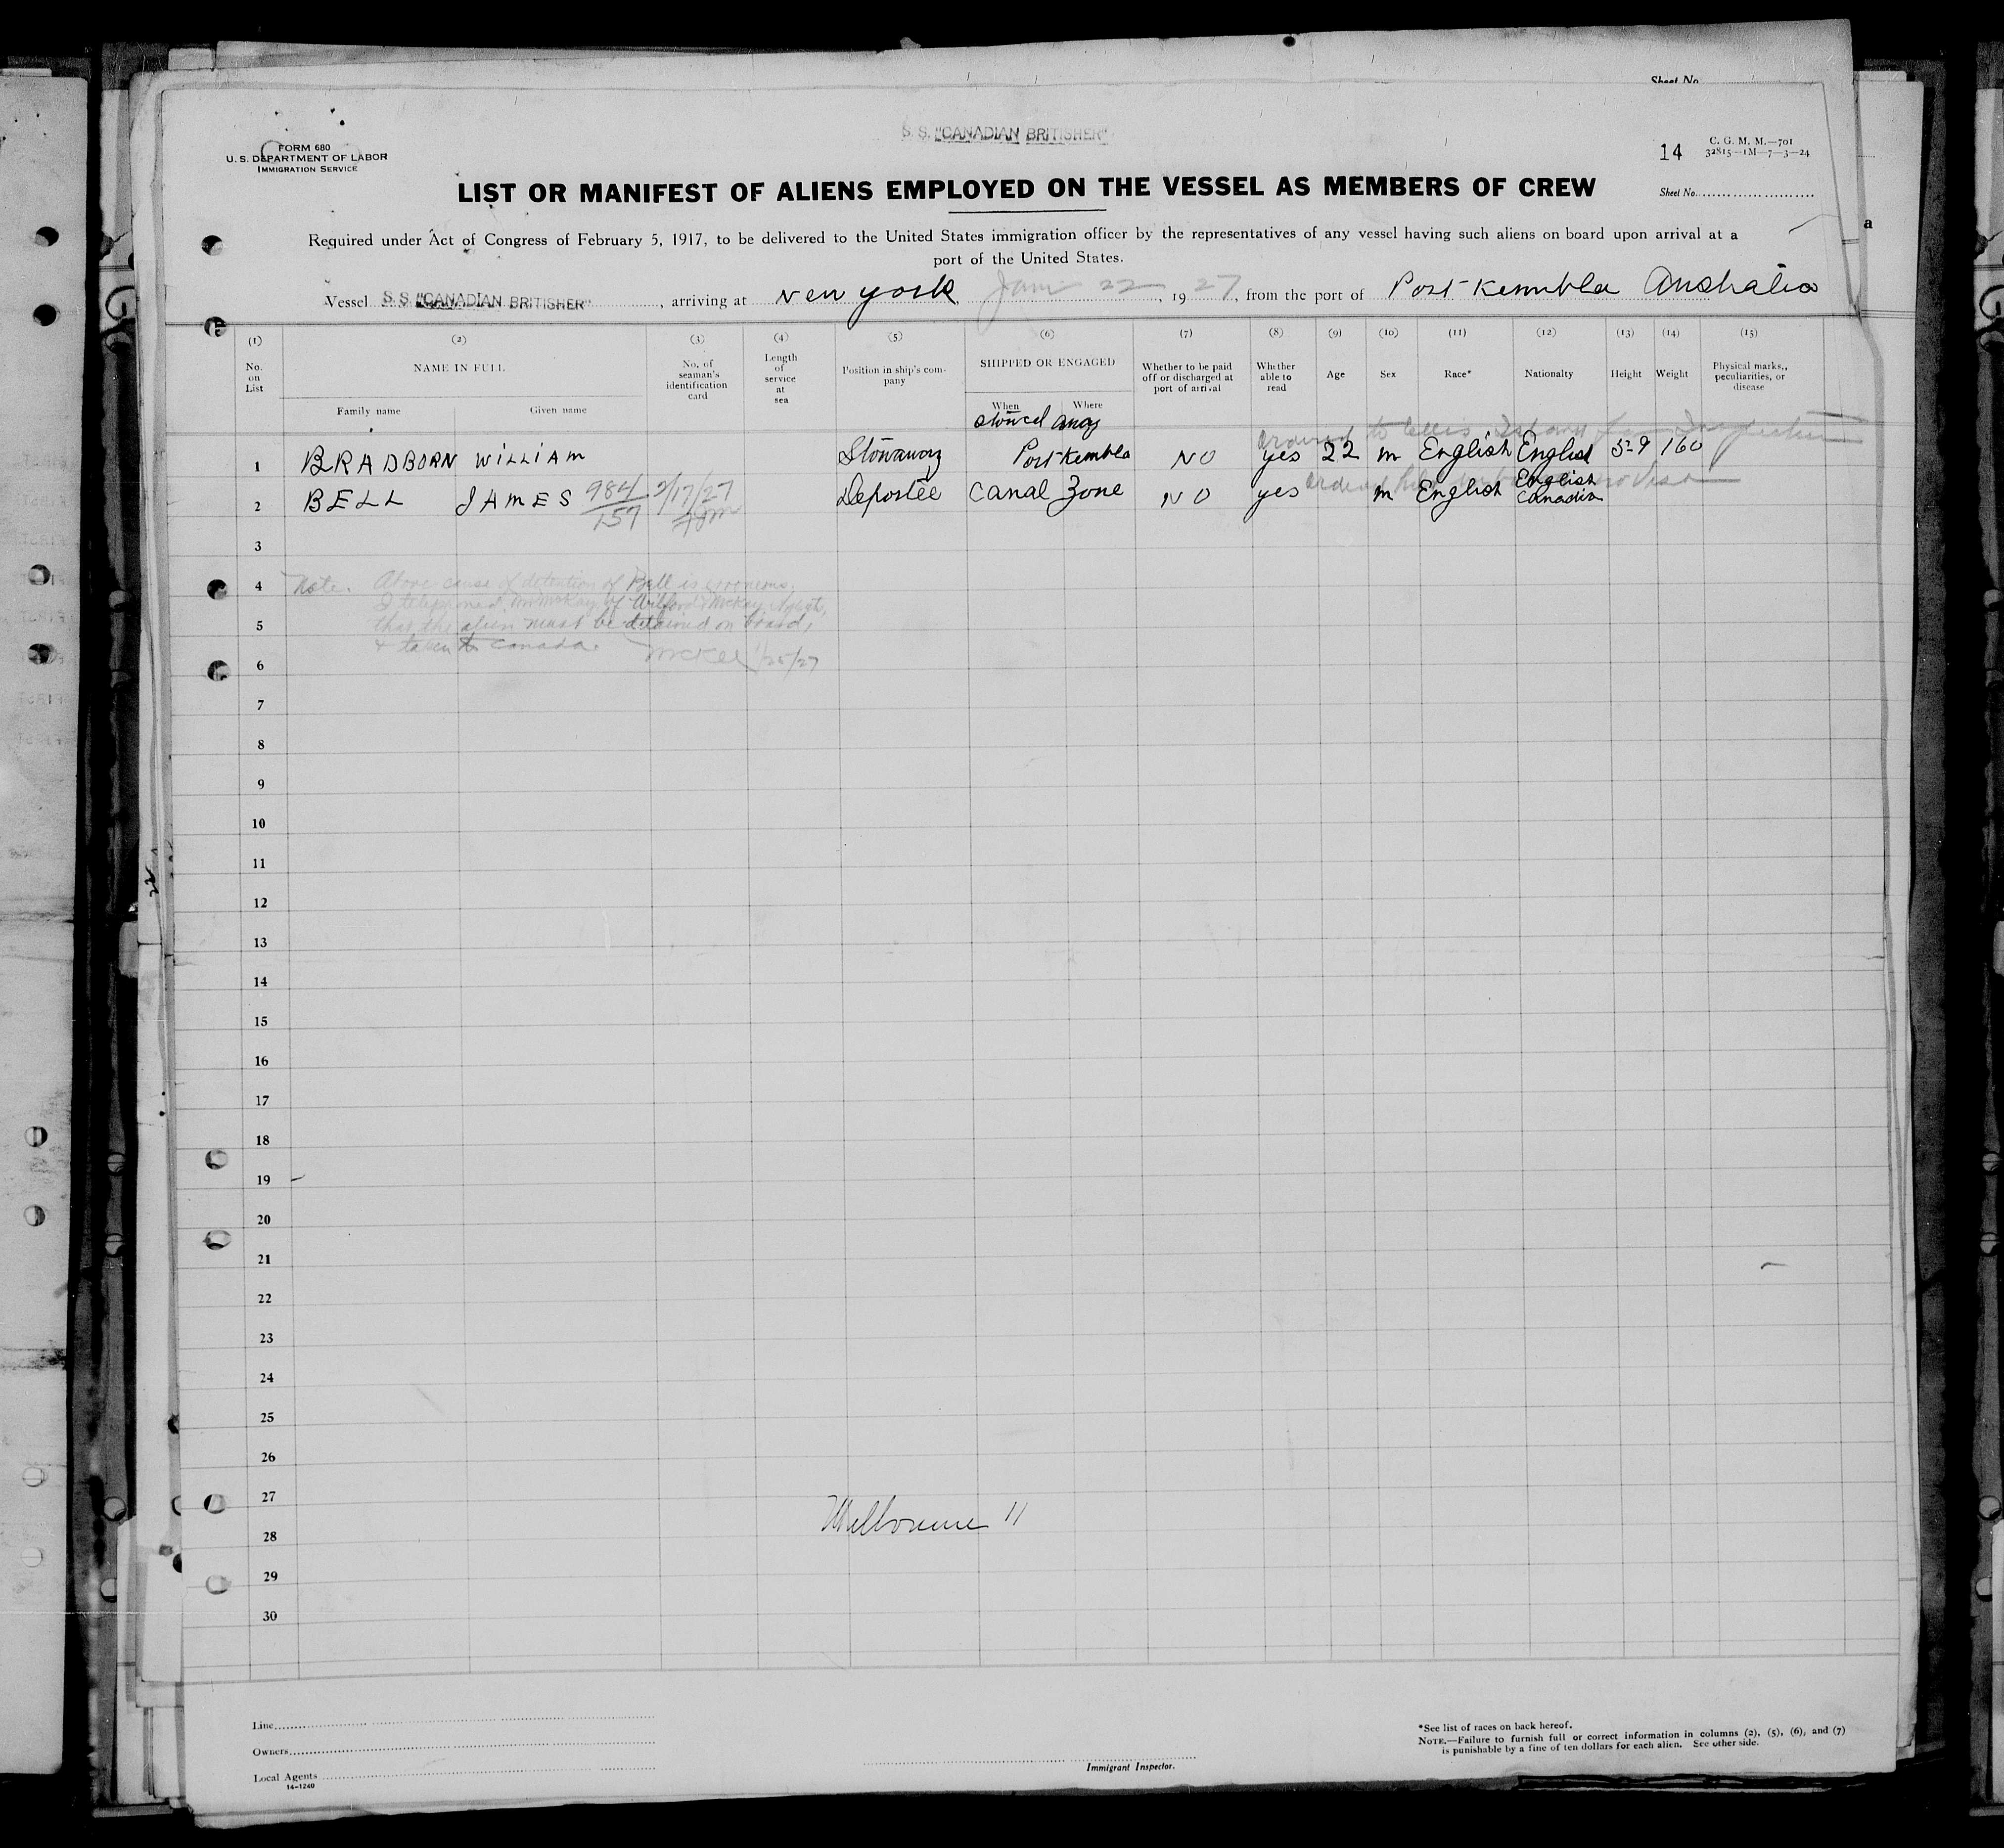 Sheet No.
S. S. "CANADIAN BRITISHER"
FORM 680
U. S. DEPARTMENT OF LABOR
IMMIGRATION SERVICE
14
C. G. M. M.—701
32815—1M—7—3—24
LIST OR MANIFEST OF ALIENS EMPLOYED ON THE VESSEL AS MEMBERS OF CREW
Sheet No.
Required under Act of Congress of February 5, 1917, to be delivered to the United States immigration officer by the representatives of any vessel having such aliens on board upon arrival at a
port of the United States.
Vessel S. S. "CANADIAN BRITISHER", arriving at New York, Jan 22, 1927, from the port of Port Kembla Australia
(1) (2) (3) (4) (5) (6) (7) (8) (9) (10) (11) (12) (13) (14) (15)
No. on List
NAME IN FULL
Family name Given name
No. of seaman's identification card
Length of service at sea
Position in ship's company
SHIPPED OR ENGAGED
When Where
Whether to be paid off or discharged at port of arrival
Whether able to read
Age
Sex
Race*
Nationalty
Height
Weight
Physical marks, peculiarities, or disease
stowed away
1 BRADBORN WILLIAM Stowaway Port Kembla NO yes 22 m English English 5-9 160
2 BELL JAMES 984/157 2/17/27 Deportee Canal Zone NO yes m English English Canadian
3
4 Note. Above cause of detention of Bell is erroneous.
I telephoned Mr McKay of Wilford & McKay, Agents,
5 that the alien must be detained on board,
& taken to Canada. McKee 1/25/27
6
7
8
9
10
11
12
13
14
15
16
17
18
19
20
21
22
23
24
25
26
27
Melbourne 11
28
29
30
Line
Owners
Local Agents
14-1240
Immigrant Inspector.
*See list of races on back hereof.
NOTE.—Failure to furnish full or correct information in columns (2), (5), (6), and (7)
is punishable by a fine of ten dollars for each alien. See other side.